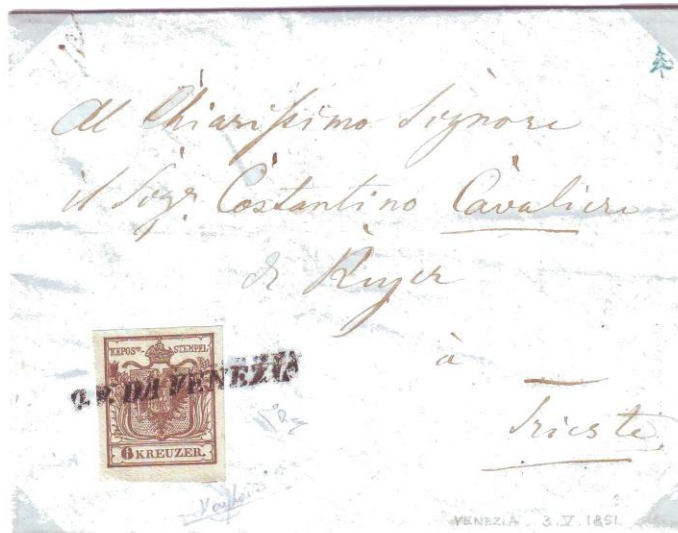 Al Chiarissimo Signore
il Sigr Costantino Cavaliere
di Reyer
à
Trieste
KKPOST-STEMPEL
DA VENEZIA
6 KREUZER.
VENEZIA 3 V 1851